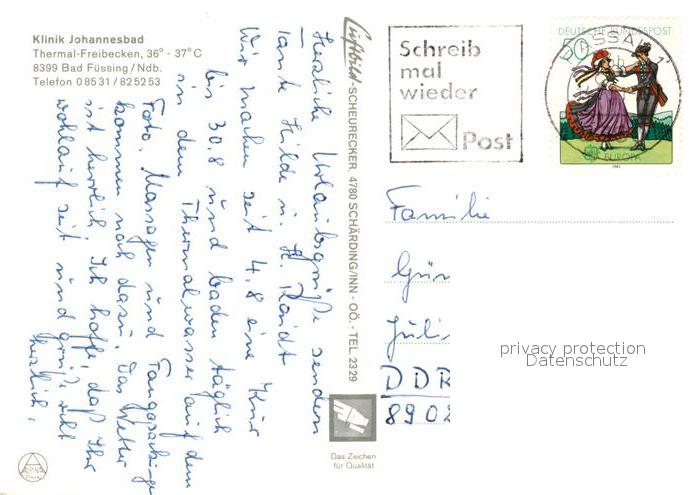 Klinik Johannesbad
Thermal-Freibecken, 36° - 37°C
8399 Bad Füssing/Ndb.
Telefon 08531/825253
Herzliche Urlaubsgrüße senden
Tante Hilde u. H.
Wir machen seit 4.8 eine Kur
bis 30.8 und baden täglich
in dem Thermalwasser auf dem
Foto. Massagen und Fangopackungen
kommen noch dazu. Das Wetter
ist herrlich. Ich hoffe, daß Ihr
wohlauf seit und grüße Euch
herzlich.
Luftbild-SCHEURECKER 4780 SCHÄRDING/INN - OÖ. - TEL. 2329
Das Zeichen
für Qualität
Schreib
mal
wieder
Post
DEUTSCHE BUNDESPOST
50
PASSAU
EUROPA
1981
Familie
Gün
Juli
DDR
8902
privacy protection
Datenschutz